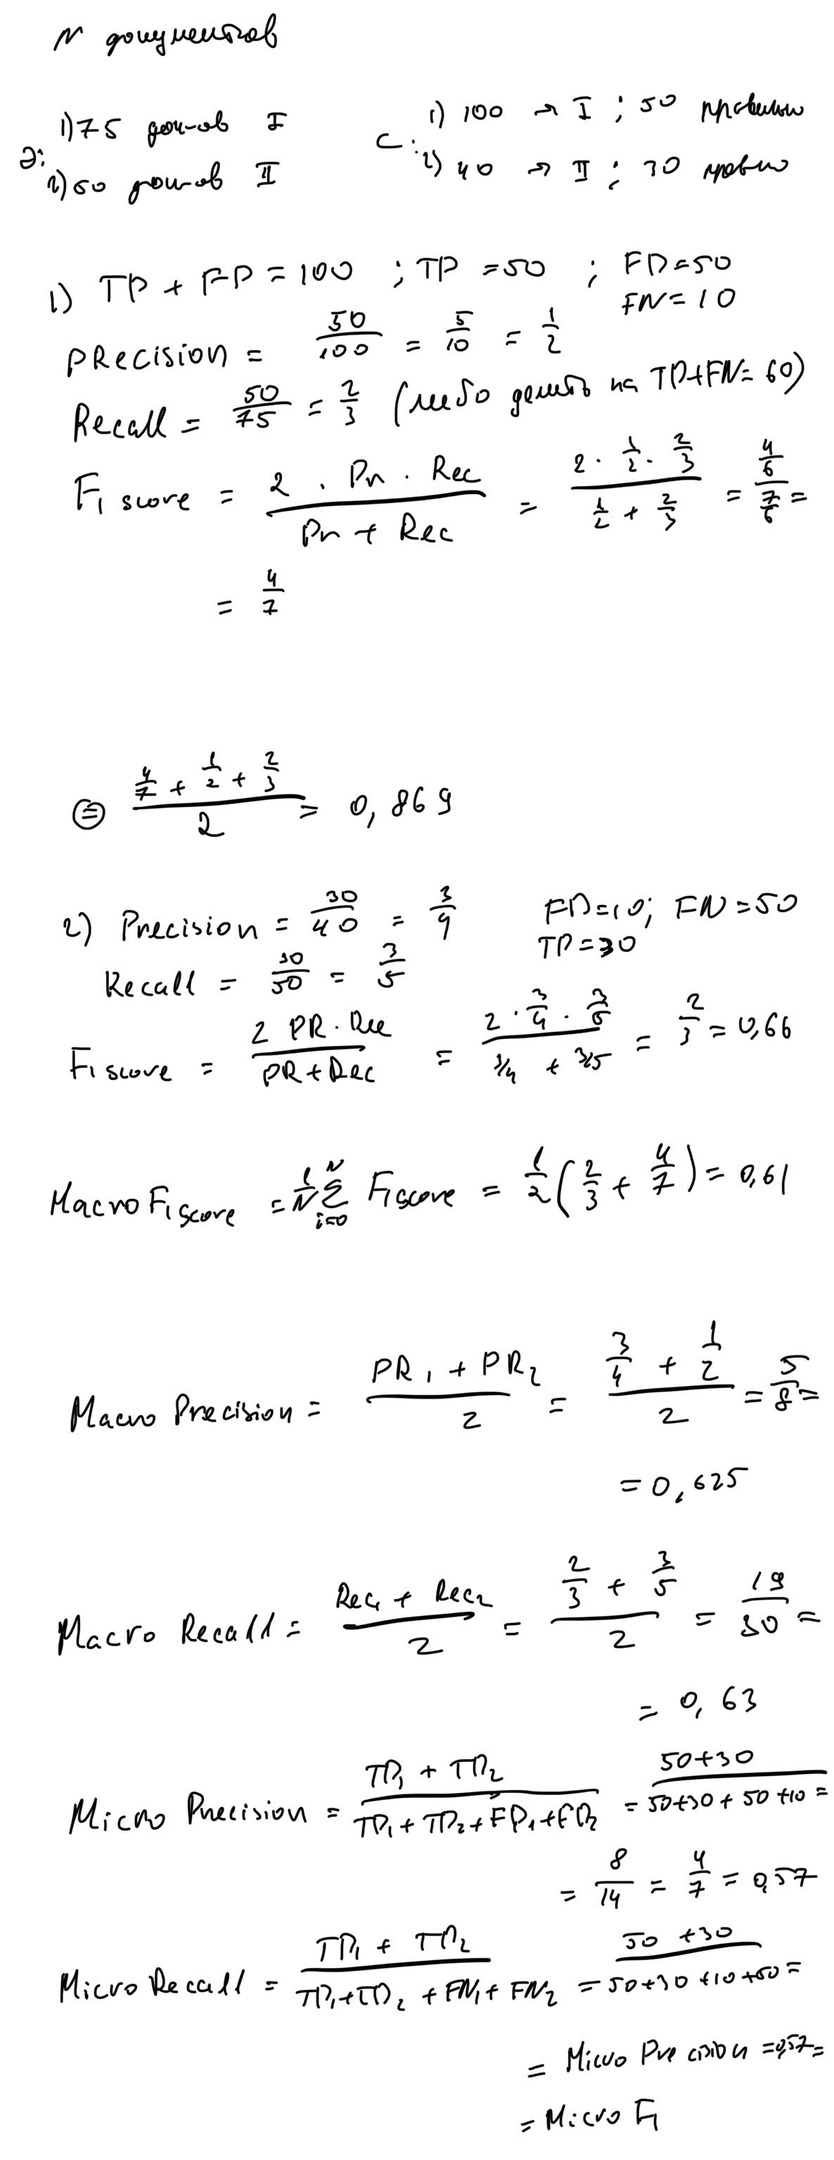 N документов
Э: 1) 75 док-ов I
2) 50 доков II
С: 1) 100 → I ; 50 правильно
2) 40 → II ; 30
1) TP + FP = 100 ; TP = 50 ; FP = 50
FN = 10
PRecision = 50/100 = 5/10 = 1/2
Recall = 50/75 = 2/3 (либо делить на TP+FN = 60)
F1 score = 2 · Pr · Rec / Pr + Rec = 2 · 1/2 · 2/3 / 1/2 + 2/3 = 4/6 / 7/6 =
= 4/7
⊜ 4/7 + 1/2 + 2/3 / 2 = 0,869
2) Precision = 30/40 = 3/4 FP = 10; FN = 50
TP = 30
Recall = 30/50 = 3/5
F1 score = 2 PR · Rec / PR + Rec = 2 · 3/4 · 3/5 / 3/4 + 3/5 = 2/3 = 0,66
Macro F1 score = 1/N Σ i=0 N F1 score = 1/2 (2/3 + 4/7) = 0,61
Macro Precision = PR1 + PR2 / 2 = 3/4 + 1/2 / 2 = 5/8 =
= 0,625
Macro Recall = Rec1 + Rec2 / 2 = 2/3 + 3/5 / 2 = 19/30 =
= 0,63
Micro Precision = TP1 + TP2 / TP1 + TP2 + FP1 + FP2 = 50+30 / 50+30 + 50 + 10 =
= 8/14 = 4/7 = 0,57
Micro Recall = TP1 + TP2 / TP1 + TP2 + FN1 + FN2 = 50 + 30 / 50+30 + 10 + 50 =
= Micro Precision = 0,57 =
= Micro F1